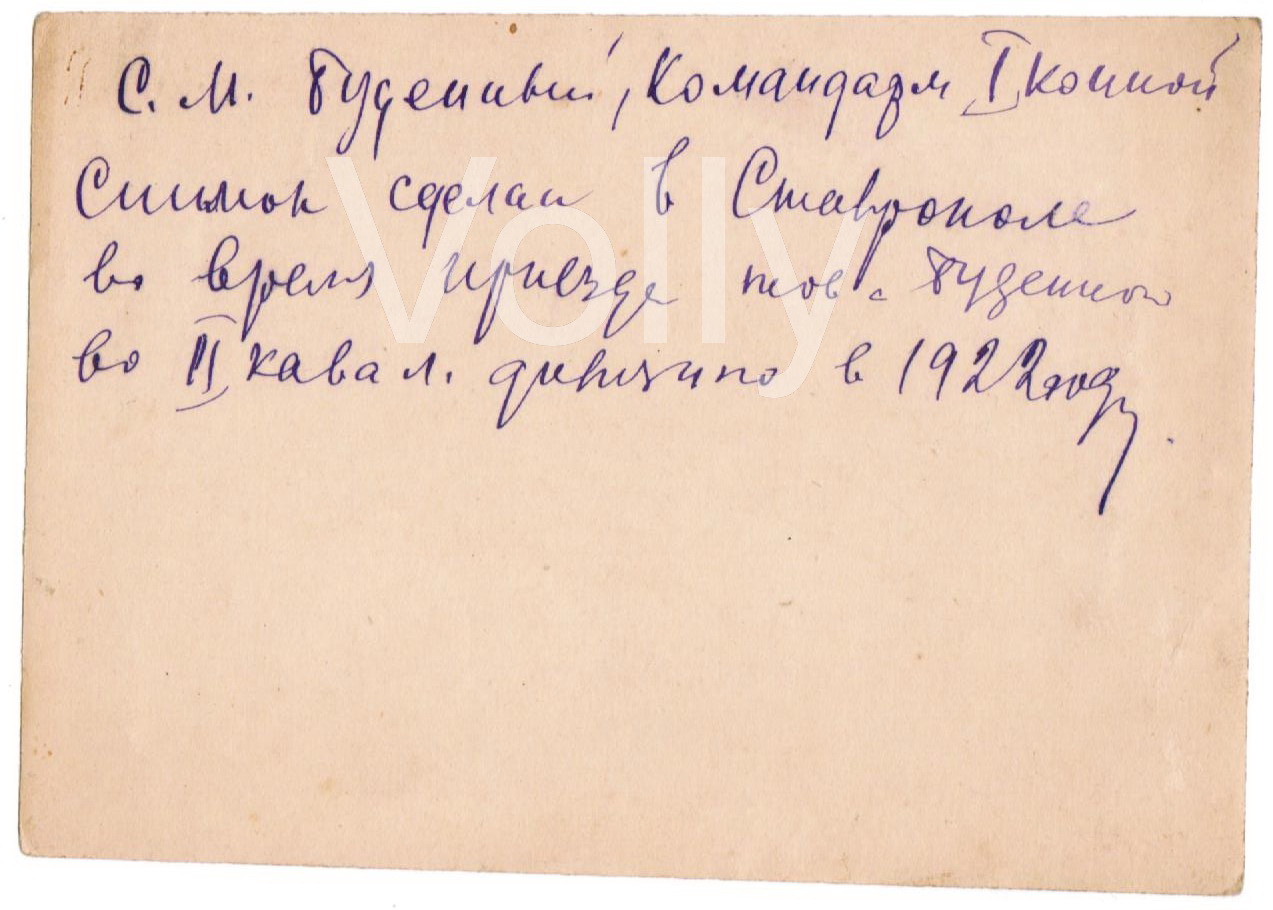 С. М. Буденный, Командарм I конной
Снимок сделан в Ставрополе
во время приезда тов. Буденного
во II кавал. дивизию в 1922 году.
Volly